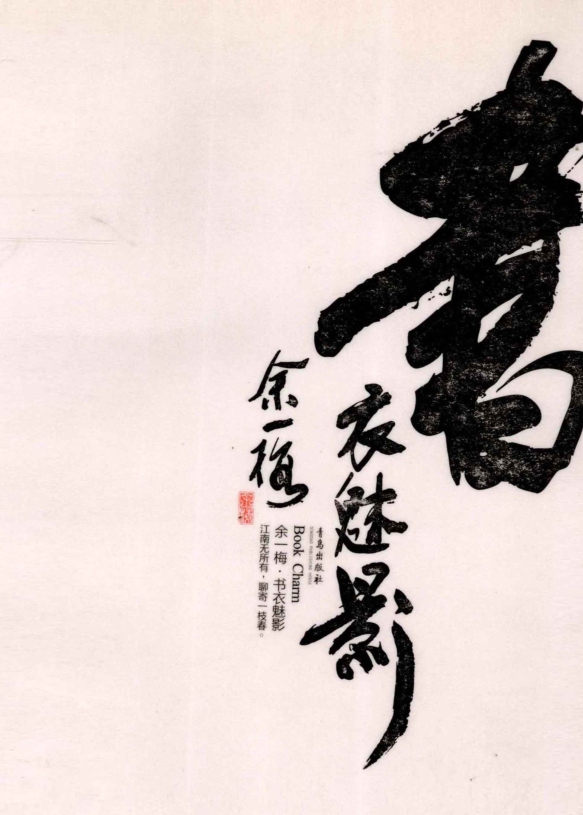 書
衣魅影
余一梅
青鸟出版社
Book Charm
余一梅·书衣魅影
江南无所有，聊寄一枝春。